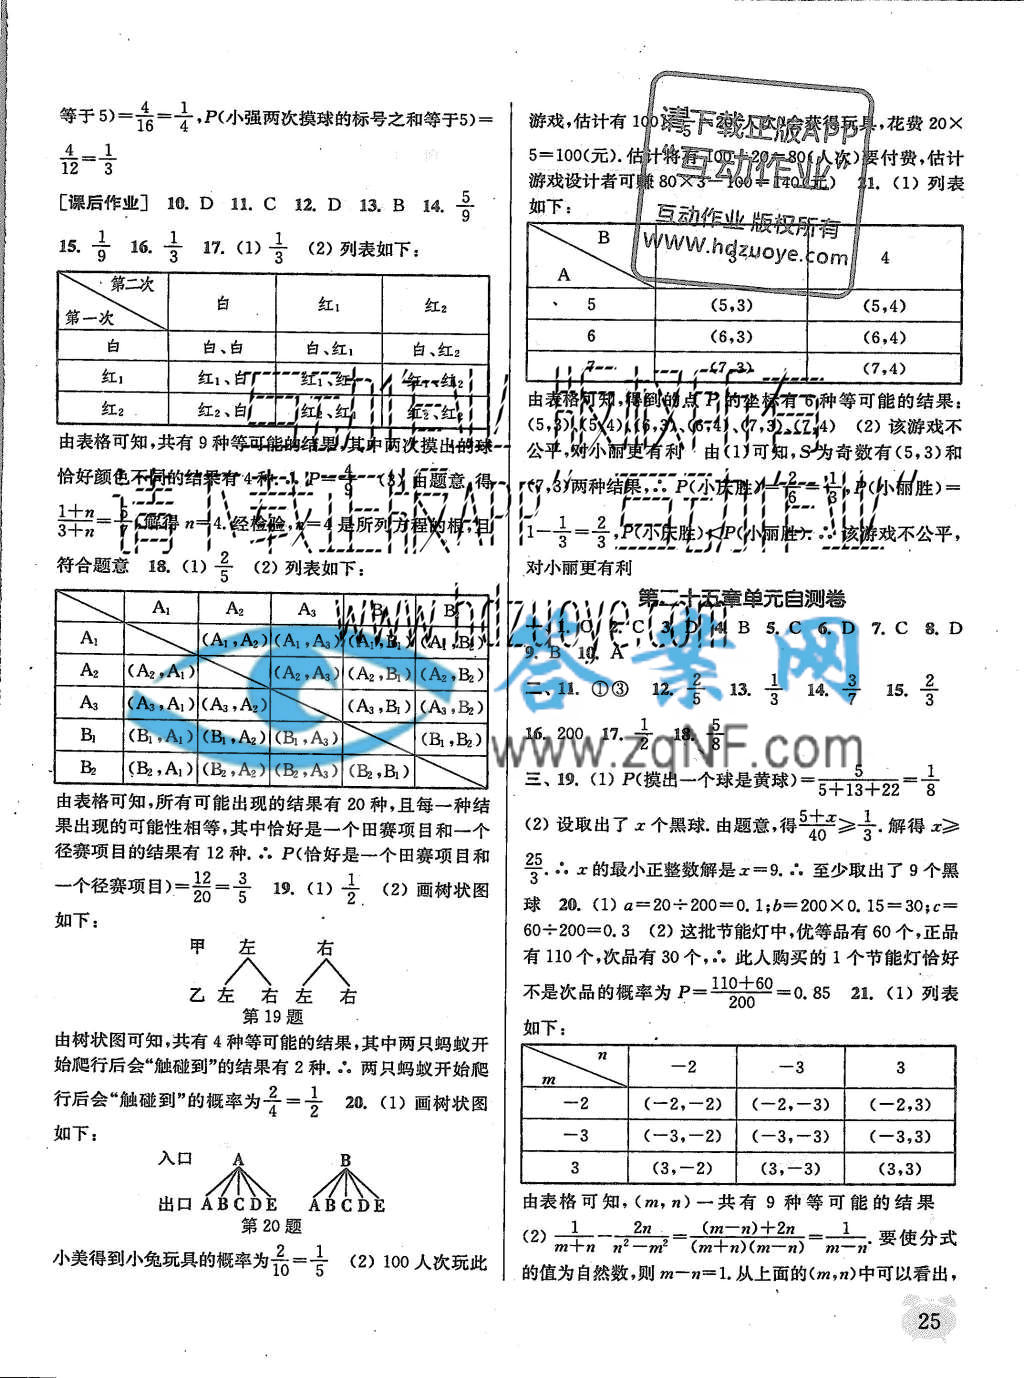 等于5)=4/16=1/4,P(小强两次摸球的标号之和等于5)=
4/12=1/3
[课后作业] 10. D 11. C 12. D 13. B 14. 5/9
15. 1/9 16. 1/3 17. (1) 1/3 (2) 列表如下:
第二次 白 红1 红2
第一次
白 白、白 白、红1 白、红2
红1 红1、白 红1、红1 红1、红2
红2 红2、白 红2、红1 红2、红2
由表格可知,共有9种等可能的结果,其中两次摸出的球
恰好颜色不同的结果有4种.∴P=4/9 (3) 由题意,得
1+n/3+n= 解得n=4.经检验,n=4是所列方程的根,且
符合题意 18. (1) 2/5 (2) 列表如下:
A1 A2 A3 B1 B2
A1 (A1,A2) (A1,A3) (A1,B1) (A1,B2)
A2 (A2,A1) (A2,A3) (A2,B1) (A2,B2)
A3 (A3,A1) (A3,A2) (A3,B1) (A3,B2)
B1 (B1,A1) (B1,A2) (B1,A3) (B1,B2)
B2 (B2,A1) (B2,A2) (B2,A3) (B2,B1)
由表格可知,所有可能出现的结果有20种,且每一种结
果出现的可能性相等,其中恰好是一个田赛项目和一个
径赛项目的结果有12种.∴P(恰好是一个田赛项目和
一个径赛项目)=12/20=3/5 19. (1) 1/2 (2) 画树状图
如下:
甲 左 右
乙 左 右 左 右
第19题
由树状图可知,共有4种等可能的结果,其中两只蚂蚁开
始爬行后会“触碰到”的结果有2种.∴两只蚂蚁开始爬
行后会“触碰到”的概率为2/4=1/2 20. (1) 画树状图
如下:
入口 A B
出口 A B C D E A B C D E
第20题
小美得到小兔玩具的概率为2/10=1/5 (2) 100人次玩此
游戏,估计有100×1/5=20(人次)会获得玩具,花费20×
5=100(元).估计将有100-20=80(人次)要付费,估计
游戏设计者可赚80×3-100=140(元) 21. (1) 列表
如下:
B 3 4
A
5 (5,3) (5,4)
6 (6,3) (6,4)
7 (7,3) (7,4)
由表格可知,得到的点P的坐标有6种等可能的结果:
(5,3)、(5,4)、(6,3)、(6,4)、(7,3)、(7,4) (2) 该游戏不
公平,对小丽更有利 由(1)可知,S为奇数有(5,3)和
(7,3)两种结果,∴P(小庆胜)=2/6=1/3,P(小丽胜)=
1-1/3=2/3,P(小庆胜)<P(小丽胜).∴该游戏不公平,
对小丽更有利
第二十五章单元自测卷
一、1. C 2. C 3. D 4. B 5. C 6. D 7. C 8. D
9. B 10. A
二、11. ①③ 12. 2/5 13. 1/3 14. 3/7 15. 2/3
16. 200 17. 1/2 18. 5/8
三、19. (1) P(摸出一个球是黄球)=5/5+13+22=1/8
(2) 设取出了x个黑球.由题意,得5+x/40≥1/3.解得x≥
25/3.∴x的最小正整数解是x=9.∴至少取出了9个黑
球 20. (1) a=20÷200=0.1;b=200×0.15=30;c=
60÷200=0.3 (2) 这批节能灯中,优等品有60个,正品
有110个,次品有30个,∴此人购买的1个节能灯恰好
不是次品的概率为P=110+60/200=0.85 21. (1) 列表
如下:
n -2 -3 3
m
-2 (-2,-2) (-2,-3) (-2,3)
-3 (-3,-2) (-3,-3) (-3,3)
3 (3,-2) (3,-3) (3,3)
由表格可知,(m,n)一共有9种等可能的结果
(2) 1/m+n-2n/n²-m²=(m-n)+2n/(m+n)(m-n)=1/m-n.要使分式
的值为自然数,则m-n=1.从上面的(m,n)中可以看出,
25
请下载正版APP
“互动作业”
互动作业 版权所有
www.hdzuoye.com
请下载正版APP“互动作业”
www.hdzuoye.com
答案网
www.zqNF.com